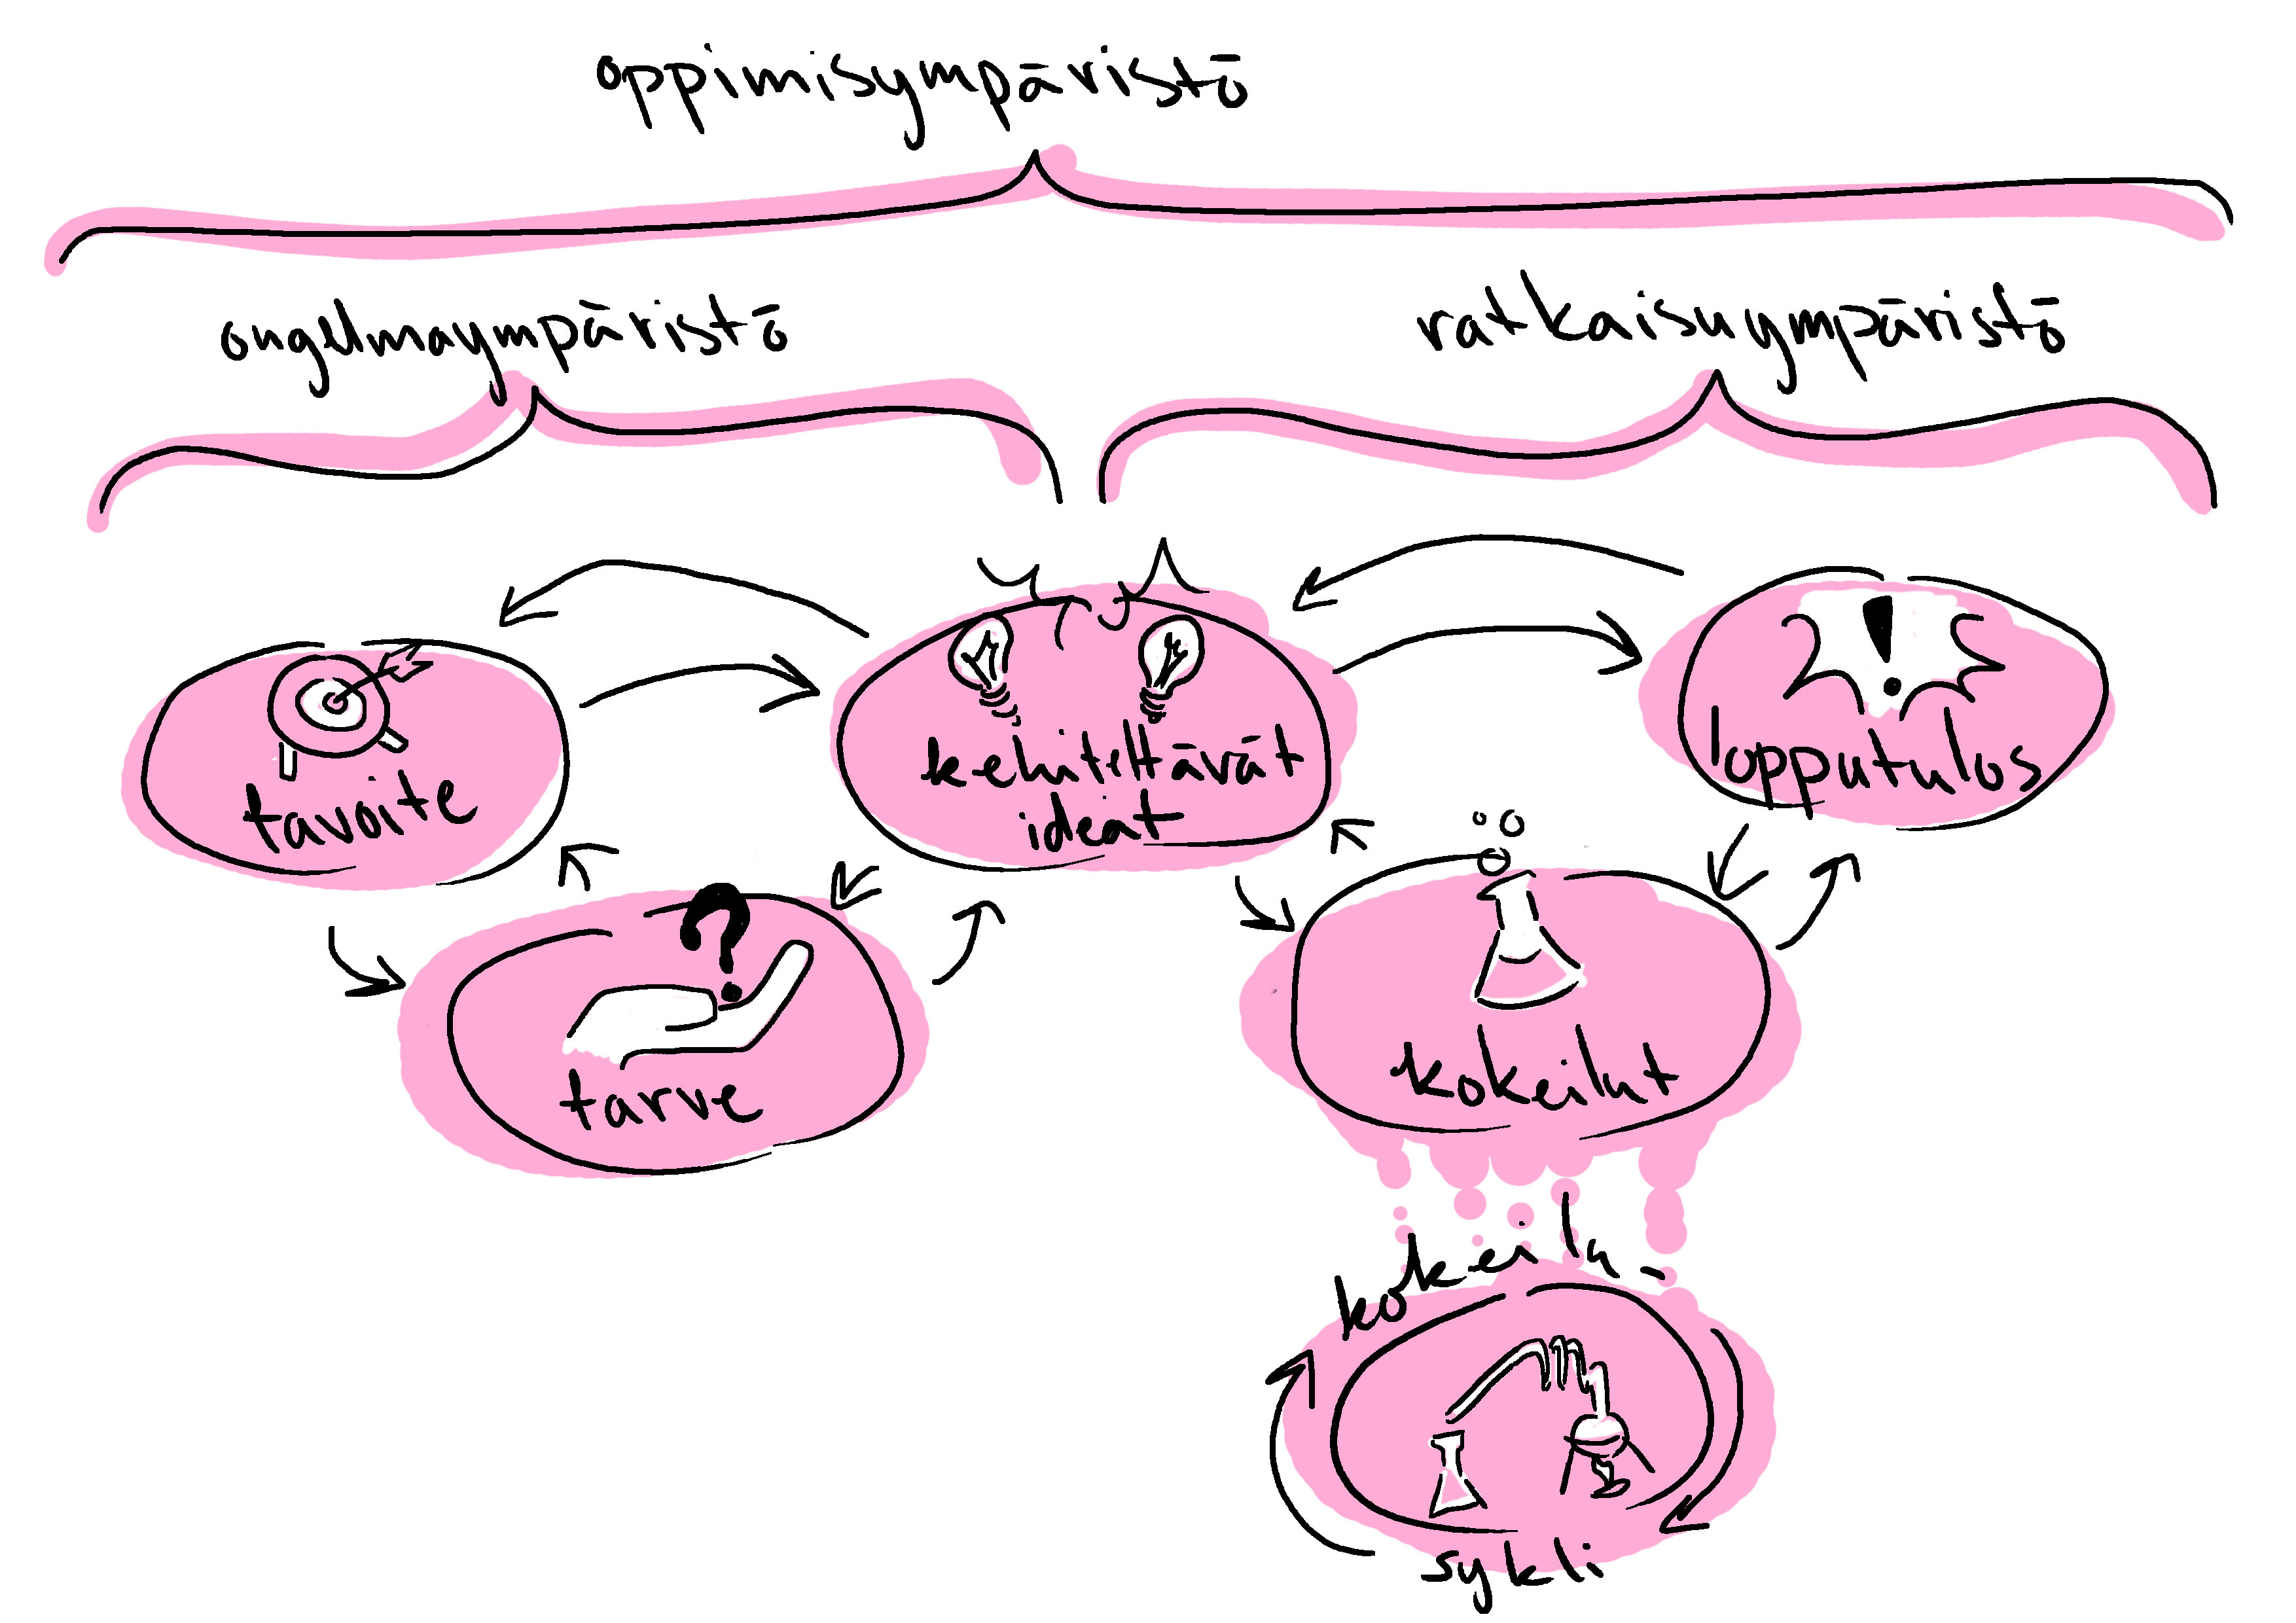 oppimisympäristö
ongelmaympäristö
ratkaisuympäristö
tavoite
kehiteltävät
ideat
lopputulos
?
!
tarve
kokeilut
kokeilu-
sykli